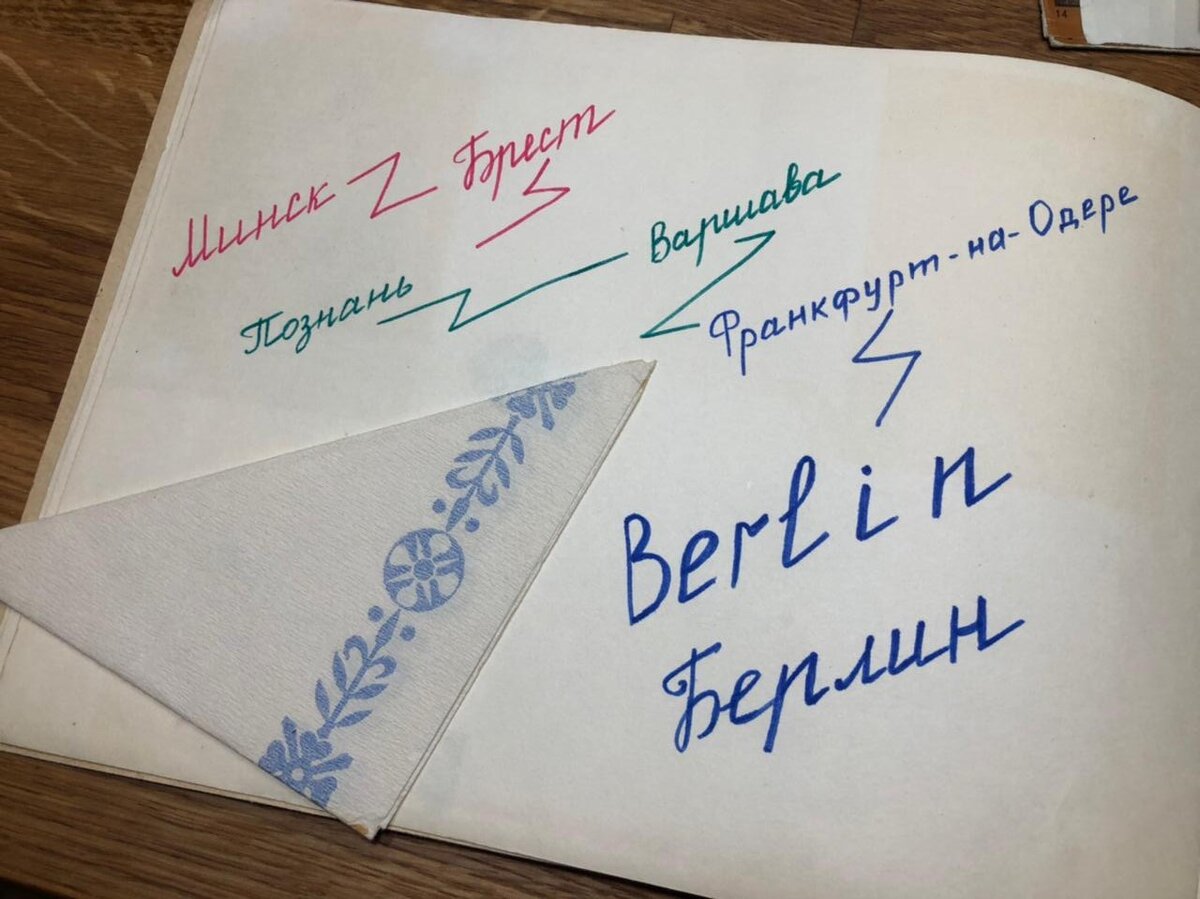 Минск Брест
Познань Варшава
Франкфурт-на-Одере
Berlin
Берлин
14